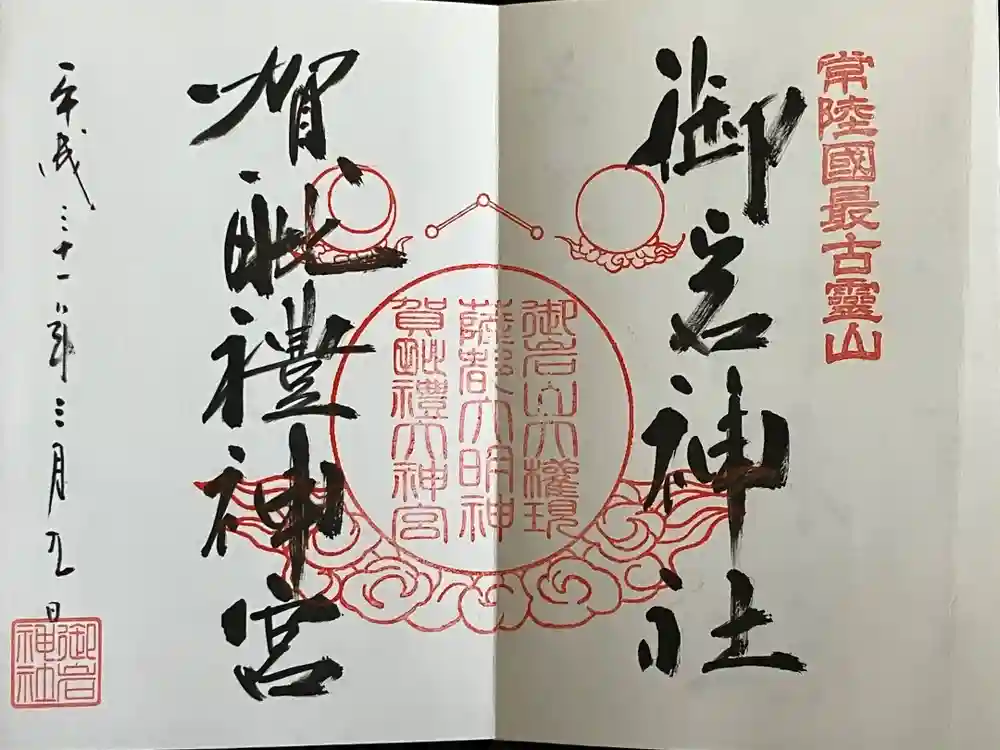 常陸國最古靈山
御岩神社
御岩山大権現
薩都大明神
賀毗禮大神宮
賀毗禮神宮
平成三十一年三月九日
御岩
神社